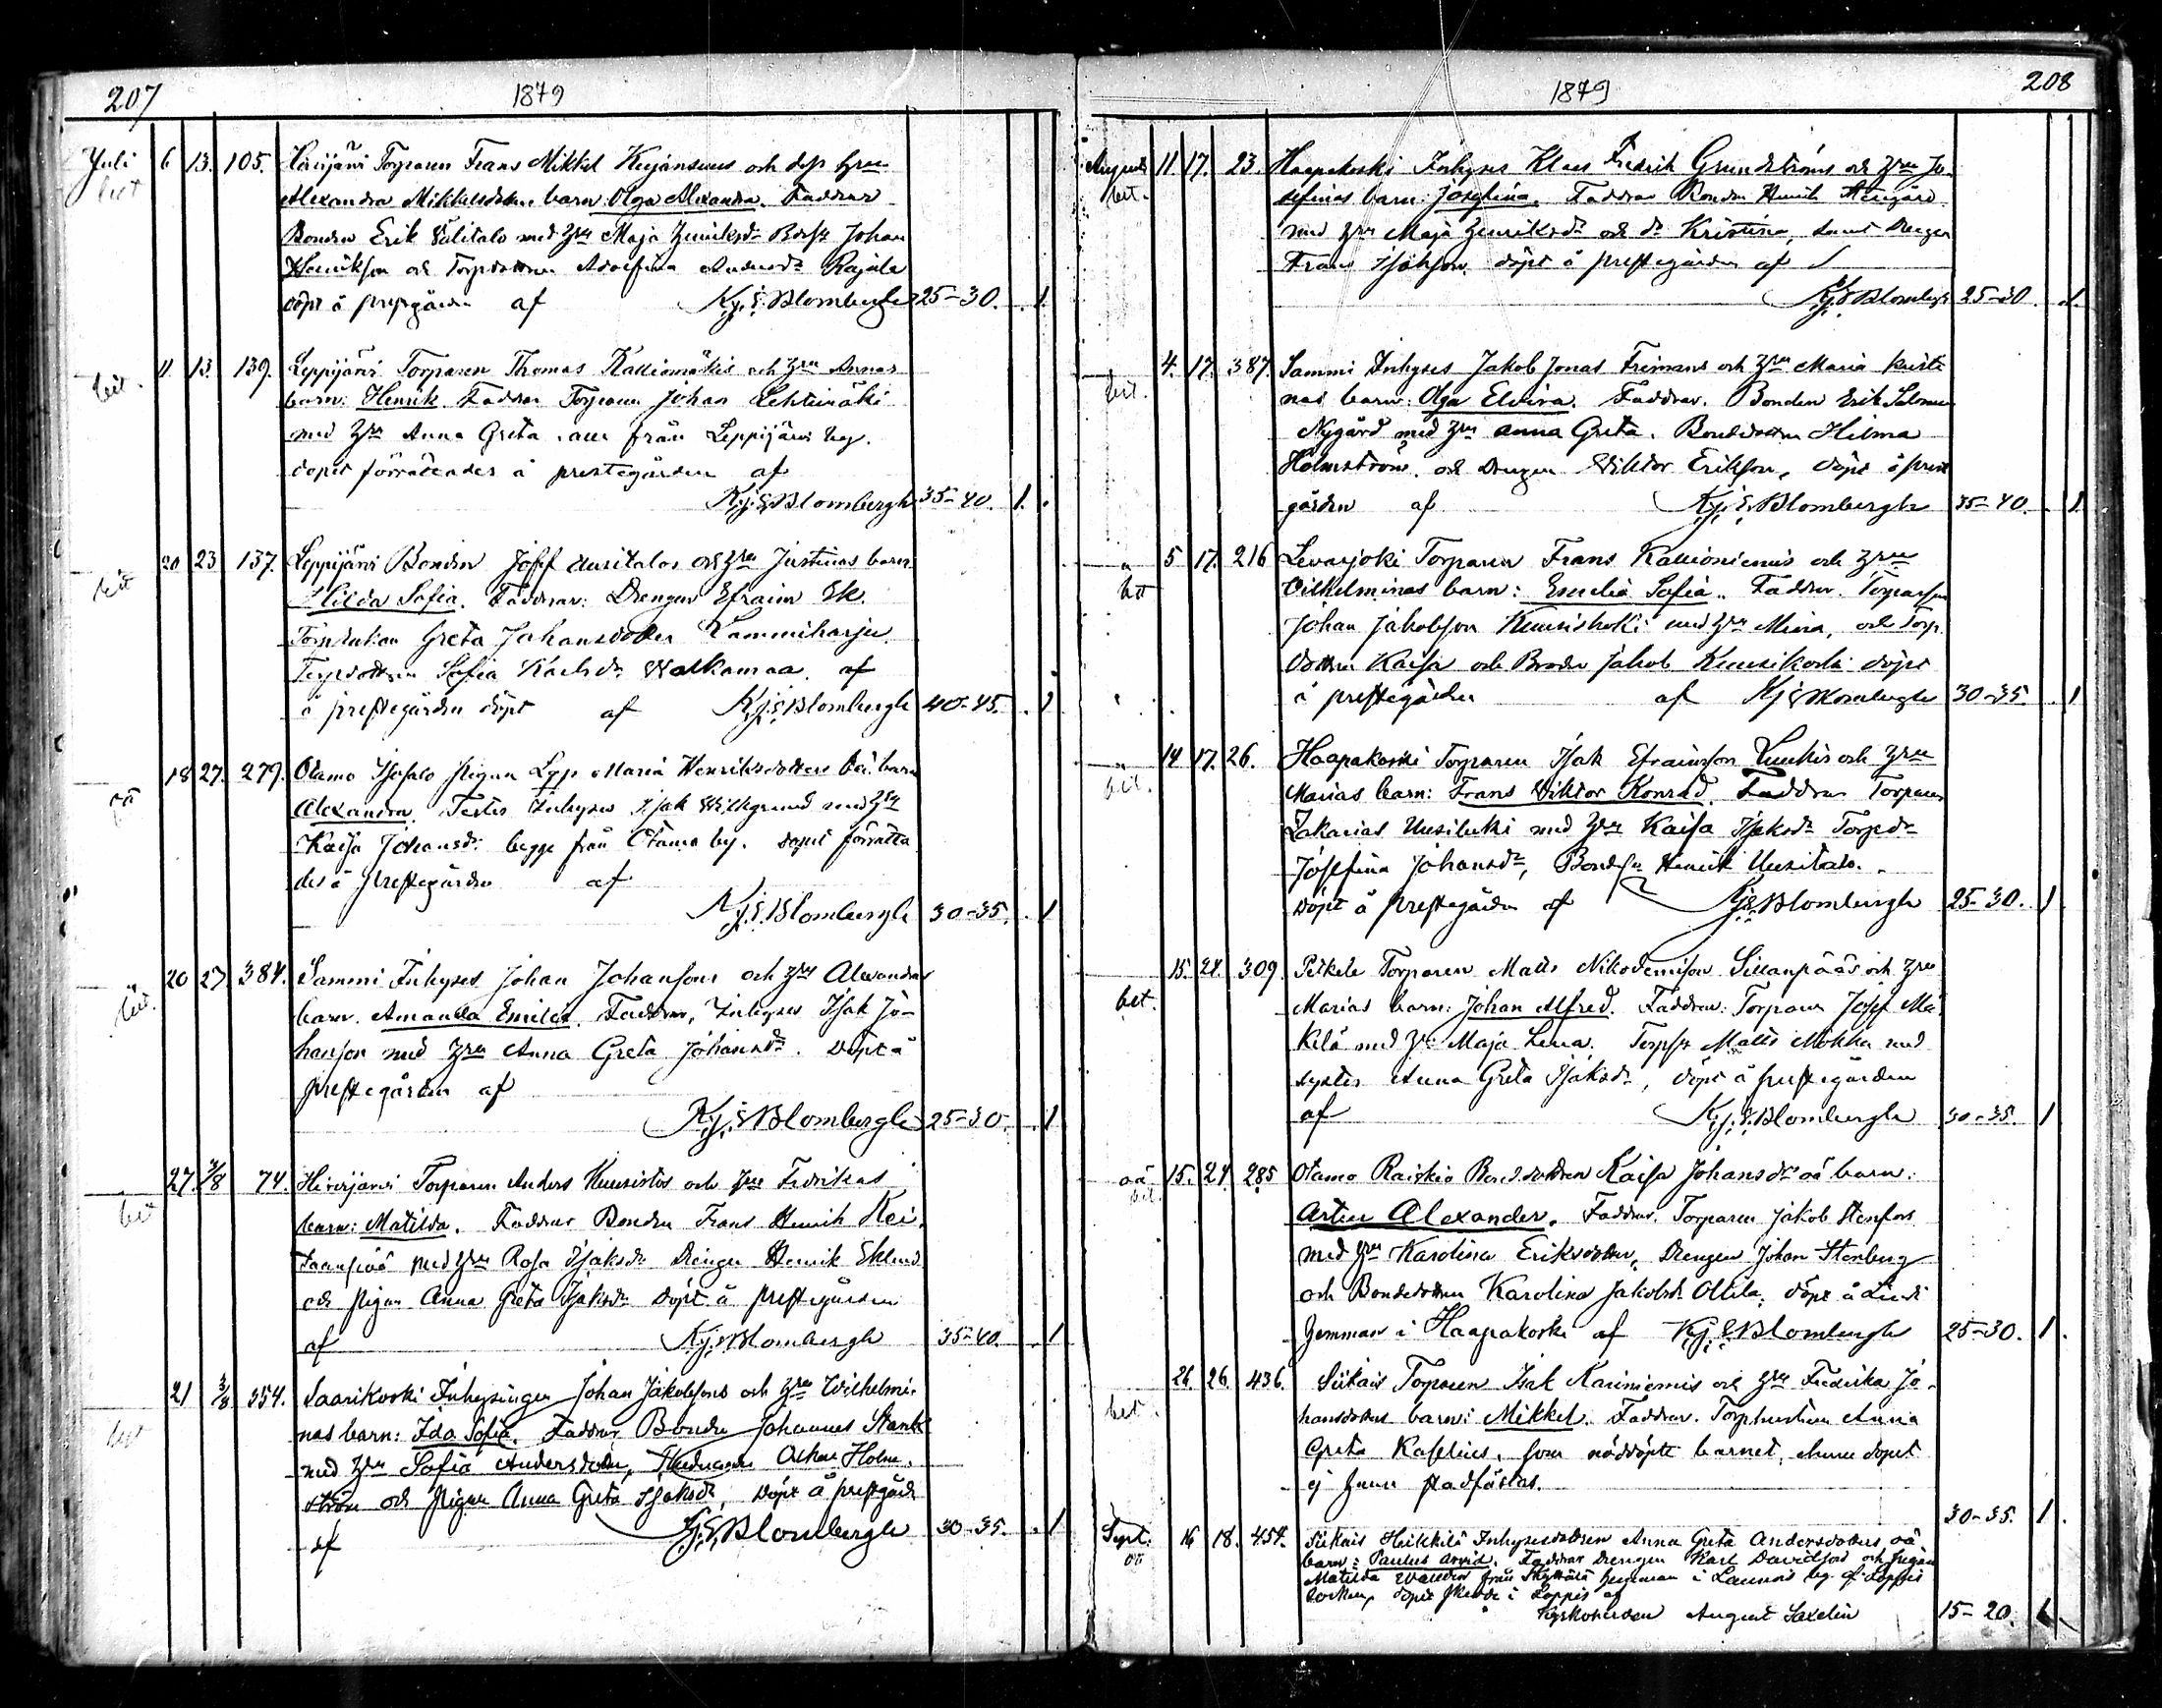 207
1879
Juli 6 13. 105. Torparen Frans Mikkel och dess hru
bet Alexandra Mikkelsdotters barn: Olga Alexandra. Faddrar
Bonden Erik Välitalo med hru Maja Henriksdr Johan
Henriksson och Adolfina Andersdr Rajala
döpt å prestgården af Kj. E. Blombergh 25-30. 1.
11. 13. 139. Leppijärvi Torparen Thomas Kalliomäkis och hru Annas
bet. barn: Henrik. Faddrar Torparen Johan Lehtimäki
med hru Anna Greta, från Leppijärvi by.
dopet förrättades å prestegården af
Kj. E. Blombergh 35-40. 1.
20 23 137. Leppijärvi Bonden Josef Uusitalos och hru Justinas barn
bet Hilda Sofia. Faddrar: Drengen Efraim Ek.
Greta Johansdotter Lammiharju.
Sofia Karlsdr Walkamaa. af
å prestegården döpt af Kj. E. Blombergh 40-45. 1
18 27. 279. Otamo pigan Maria Henriksdotters oä. barn
oä Alexandra. Testes Inhyses Isak med hru
Kaisa Johansdr begge från Otamo by. dopet förrätta
des å prestegården af
Kj. E. Blombergh 30-35. 1
20 27. 384. Sammi Inhyses Johan Johansons och hru Alexandras
bet. barn. Amanda Emilia. Faddrar, Inhyses Isak Jo-
hanson med hru Anna Greta Johansdr. döpt å
prestegården af
Kj. E. Blombergh 25-30. 1
27. 3/8 74. Hirvijärvi Torparen Anders Kuusistos och hru Fredrikas
bet barn: Matilda. Faddrar Bonden Frans Henrik
med hru Rosa Isaksdr Drengen Henrik Eklund
och pigan Anna Greta Isaksdr döpt å prestegården
af Kj. E. Blombergh 35-40. 1
21 3/8 354. Saarikoski Inhysingen Johan Jakobsons och hru Wilhelmi-
bet nas barn: Ida Sofia. Faddrar Bonden Johannes
med hru Sofia Andersdotter, Oskar Holm-
ström och pigan Anna Greta Isaksdr, döpt å prestgård
af Kj. E. Blombergh 30-35. 1
208
1879
Augusti 11 17. 23. Haapakoski Inhyses Klas Fredrik Grundströms och hru Jo-
bet. sefinas barn: Josefina. Faddrar Bonden Henrik
med hru Maja Henriksdr och dr Kristina, samt Drengen
Frans Isakson. döpt å prestegården af
Kj. E. Blombergh 25-30. 1.
4. 17. 387. Sammi Inhyses Jakob Jonas Frimans och hru Maria Kristi
bet. nas barn: Olga Elvira. Faddrar. Bonden Erik Salomon
Nygård med hru Anna Greta. Bondedottren Hilma
Holmström, och Drengen Wiktor Erikson, döpt å prest
gården af Kj. E. Blombergh 35-40. 1
" 5 17. 216 Levasjoki Torparen Frans Kallioniemis och hru
bet Vilhelminas barn: Emelia Sofia. Faddrar. Torparson
Johan Jakobson Kuusikoski med hru Mina, och Torp
dottren Kaisa och Broder Jakob Kuusikoski döpt
å prestegården af Kj. E. Blombergh 30-35. 1
" 14 17. 26. Haapakoski Torparen Isak Efraimson och hru
bet. Marias barn: Frans Wiktor Konrad. Faddrar Torparen
Zakarias med hru Kaisa Isaksdr Torpdr
Josefina Johansdr, Henrik Uusitalo.
Döpt å prestegården af Kj. E. Blombergh 25-30. 1
15. 24. 309. Peikele Torparen Matts Nikodemison Sillanpääs och hru
bet. Marias barn: Johan Alfred. Faddrar: Torparen Josef Mä
kilä med hr Maja Lena. Matts Mokka med
syster Anna Greta Isaksdr, döpt å prestegården
af Kj. E. Blombergh 30-35. 1
oä 15. 24. 285 Otamo Raiskio Bondedottren Kaisa Johansdr oä barn:
bet Artur Alexander. Faddrar. Torparen Jakob Stenfors
med hru Karolina Eriksdotter, Drengen Johan Stenberg
och Bondedottren Karolina Jakobsdr Ollila, döpt å
hemman i Haapakoski af Kj. E. Blombergh 25-30. 1.
26. 26. 436. Siikais Torparen Isak Kariniemis och hru Fredrika Jo-
bet. hansdotters barn: Mikkel. Faddrar. Torphustrun Anna
Greta Kaselius, som nöddöpte barnet, dopet
ej stadfästas.
30-35. 1.
Sept. 16 18. 454. Siikais Heikkilä Inhysesdottren Anna Greta Andersdotters oä
oä barn: Paulus Arvid. Faddrar drengen Karl Davidson och pigan
Matilda från hemman i by af Loppis
socken, döpt i Loppis af
Kyrkoherden August Saxelin 15-20. 1.